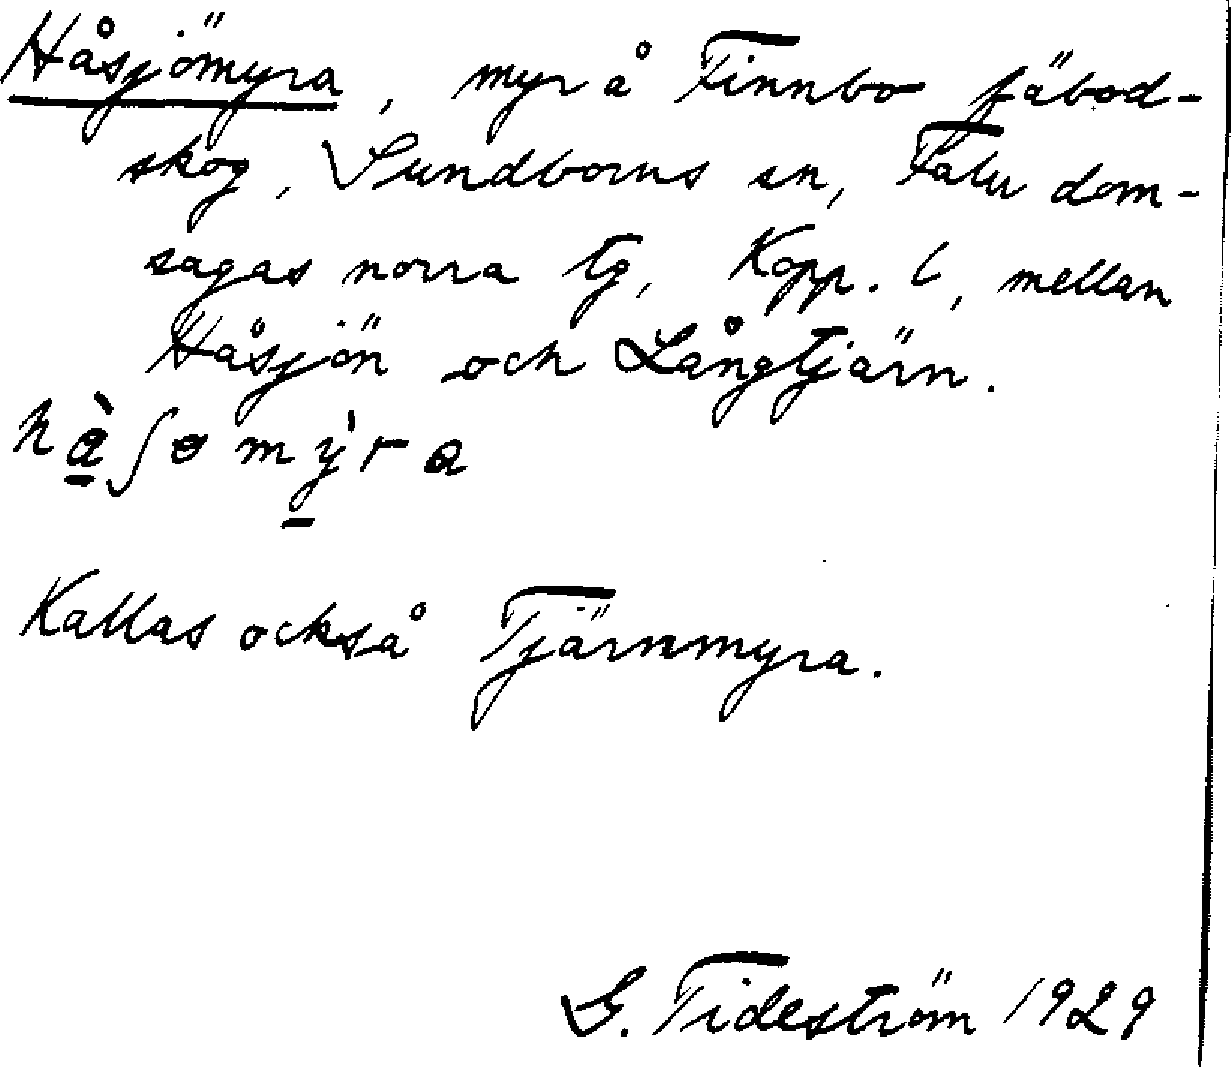 Håsjömyra, myr å Finnbo fäbod-
skog, Sundborns sn, Falu dom-
sagas norra tg, Kopp. l, mellan
Håsjön och Långtjärn.
hå̀ʃəmỳra
Kallas också Tjärnmyra.
G. Tideström 1929